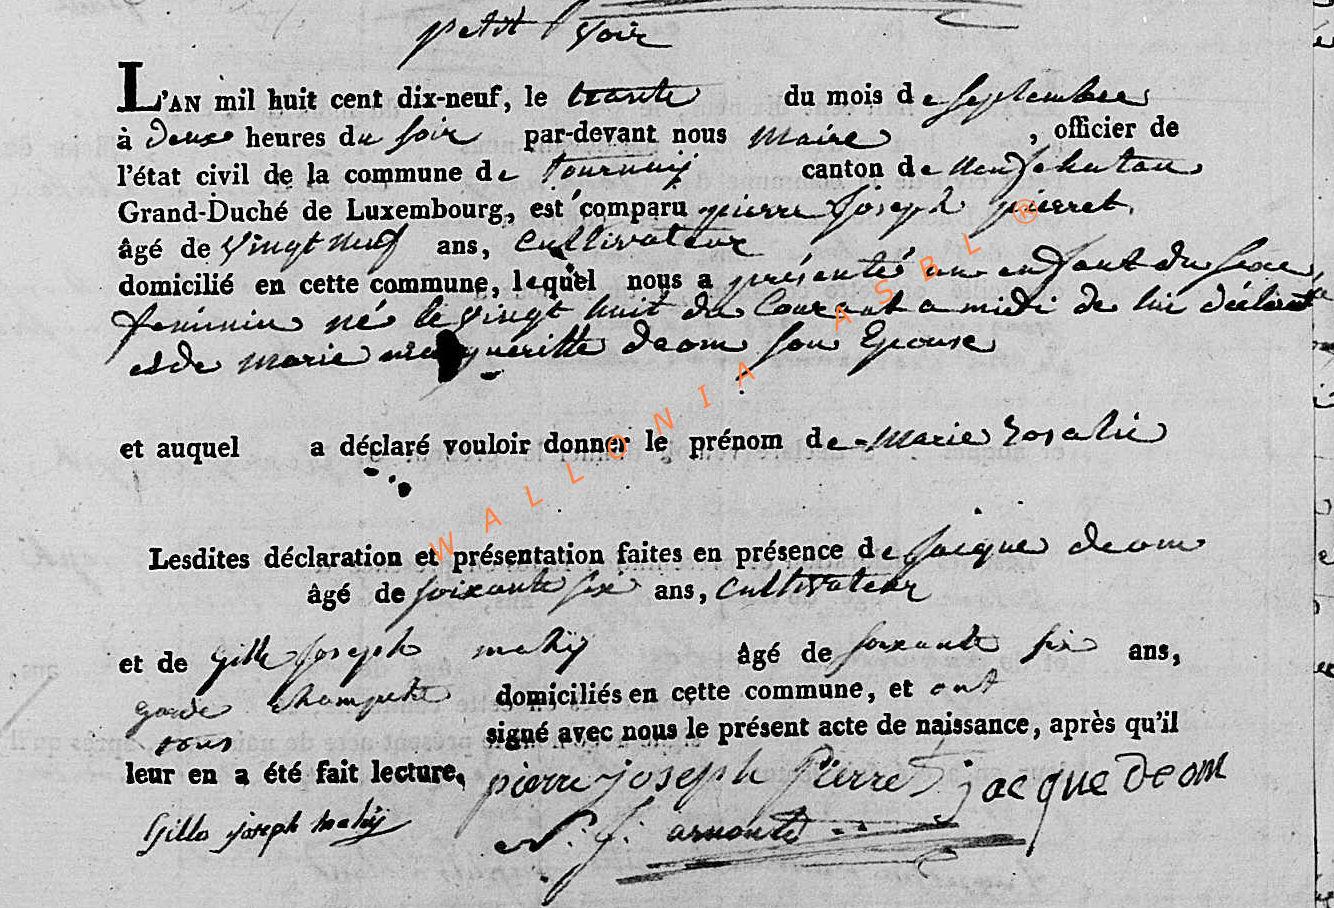 petit Voir
L'AN mil huit cent dix-neuf, le trante du mois de septembre
à deux heures du soir par-devant nous maire , officier de
l'état civil de la commune de tournay canton de neufchatau
Grand-Duché de Luxembourg, est comparu pierre Joseph pierret
âgé de vingt neuf ans, cultivateur
domicilié en cette commune, lequel nous a présenté un enfant du sexe
feminin né le vingt huit du courant a midi de lui déclarant
et de marie margueritte deom son Epouse
et auquel a déclaré vouloir donner le prénom de Marie rosalie
Lesdites déclaration et présentation faites en présence de jacque deom
âgé de soixante six ans, cultivateur
et de gille joseph mahy âgé de soixante six ans,
garde champetre domiciliés en cette commune, et ont
tous signé avec nous le présent acte de naissance, après qu'il
leur en a été fait lecture. pierre joseph pierret jacque deom
Gille joseph mahy N. J. arnould
WALLONIA ASBL ®